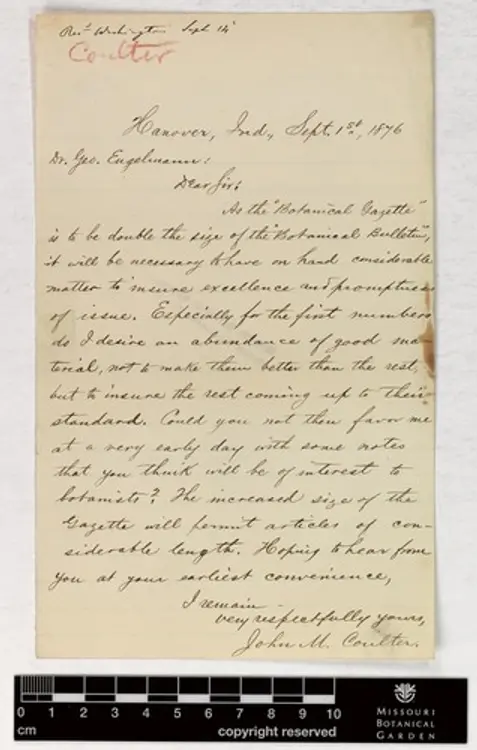 Rec.d Washington Sept 14
Coulter
Hanover, Ind., Sept. 1st, 1876
Dr. Geo. Engelmann:
Dear Sir:
As the "Botanical Gazette"
is to be double the size of the "Botanical Bulletin",
it will be necessary to have on hand considerable
matter to insure excellence and promptness
of issue. Especially for the first numbers
do I desire an abundance of good ma-
terial, not to make them better than the rest,
but to insure the rest coming up to their
standard. Could you not then favor me
at a very early day with some notes
that you think will be of interest to
botanists? The increased size of the
Gazette will permit articles of con-
siderable length. Hoping to hear from
you at your earliest convenience,
I remain -
very respectfully yours,
John M. Coulter.
0 1 2 3 4 5 6 7 8 9 10
cm
copyright reserved
MISSOURI
BOTANICAL
GARDEN